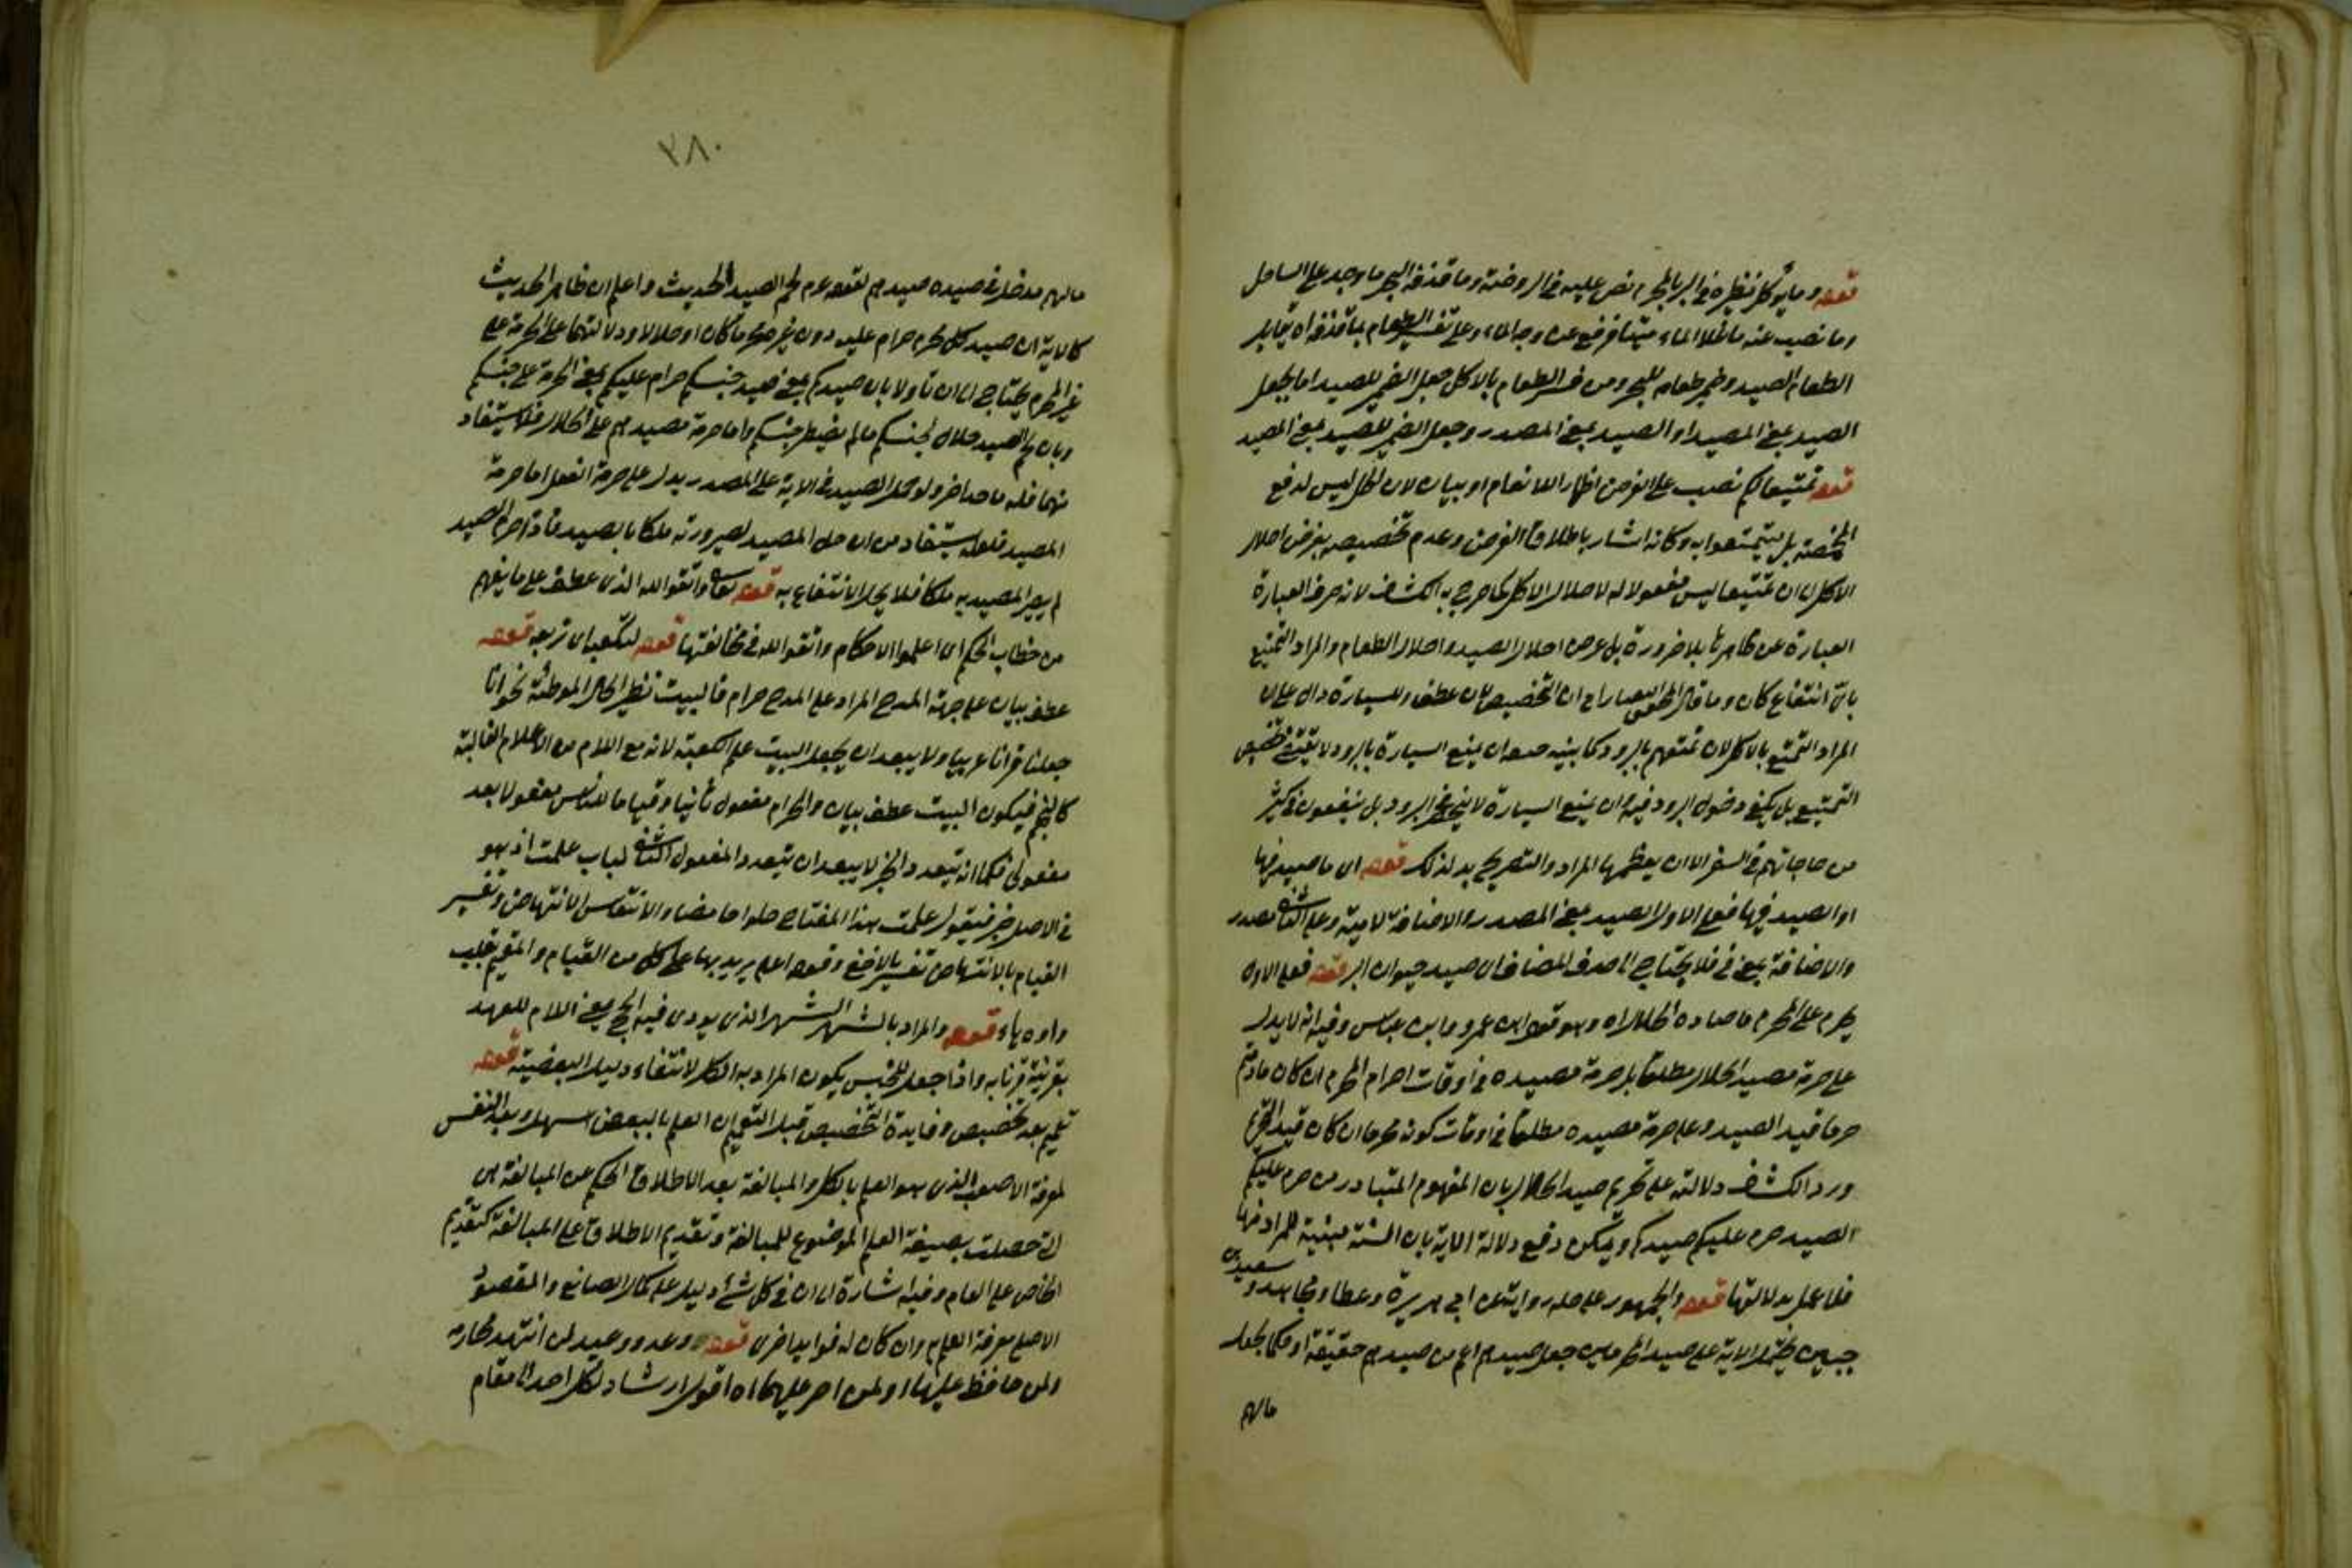 قوله وما يؤكل نظيره في البر بالبحر نص عليه في الروضة وما قذفه البحر ما وجد على الساحل
وما نضب عنه ما علا الماء ميتا فرفع عن وجه الماء وعلى تفسير الطعام بما قذفه اه يقابل
الطعام الصيد وضمير طعامه للبحر ومن فسر الطعام بالاكل جعل الضمير للصيد اما بجعل
الصيد بمعنى المصيد او الصيد بمعنى المصدر وجعل الضمير للصيد بمعنى المصيد
قوله تمتيعا لكم نصب على الغرض اظهار للانعام او بيان لان الحل ليس لدفع
المخمصة بل ليتمتعوا به وكانه اشار باطلاق الغرض وعدم تخصيصه بغرض احلال
الاكل الى ان تمتيعا ليس مفعولا له لاحلال الاكل كما صرح به الكشاف لانه صرف العبارة
العبارة عن ظاهرها بلا ضرورة بل غرض احلال الصيد واحلال الطعام والمراد التمتيع
باي انتفاع كان وما قال المحقق التفتازاني ان التخصيص لان عطف وللسيارة دال على ان
المراد التمتيع بالاكل لان تمتعهم بالتزود كما بينه معه ان تمتيع السيارة بالتزود لا يقتضي تخصيص
التمتيع بل يكفي دخول التزود فيه وان تمتيع السيارة لا ينحصر في التزود بل ينتفعون في كثير
من حاجاتهم في السفر الا ان يعظمها المراد والتصريح يدل لذلك قوله اي ما صيد فيها
او الصيد فيها فعلى الاول الصيد بمعنى المصدر والاضافة لامية وعلى الثاني مصدر
والاضافة بمعنى في فلا يحتاج الى حذف المضاف اي صيد حيوان البر قوله فعلى الاول
يحرم على المحرم ما صاده الحلال اه وهو قول ابن عمر وابن عباس وفيه انه لا يدل
على حرمة مصيد الحلال مطلقا بل حرمة مصيده في اوقات احرام المحرم ان كان ما دمتم
حرما قيد الصيد وعلى حرمة مصيده مطلقا في اوقات كونه محرما ان كان قيد التحريم
ورد الكشاف دلالته على تحريم صيد الحلال بان المفهوم المتبادر من حرم عليكم
الصيد حرم عليكم صيدكم ويمكن دفع دلالة الاية بان السنة مبينة للمراد منها
فلا عمل بدلالتها قوله والجمهور على حله رواية عن ابي هريرة وعطا ومجاهد وسعيد بن
جبير يحتمل الاية على صيد المحرمين جعل صيدهم اعم من صيدهم حقيقة او حكما بجعل
مالهم
٣٨٠
مالهم مدخل في صيده صيدهم لقوله عم لحم الصيد الحديث واعلم ان ظاهر الحديث
كالاية ان صيد كل محرم حرام عليه دون غيره محرما كان او حلالا ودلالتهما على الحرمة على
غير المحرم يحتاج الى ان تأولا بان صيدكم بمعنى صيد جنسكم حرام عليكم بمعنى الحرمة على جنسكم
وبان لحم الصيد حلال لجنسكم ما لم يصطد جنسكم واما حرمة مصيدهم على الحلال فلا يستفاد
منهما فله ماخذ اخر ولو حمل الصيد في الاية على المصدر يدل على حرمة الفعل اما حرمة
المصيد فلعله يستفاد من ان حل المصيد لصيرورته ملكا بالصيد فاذا حرم الصيد
لم يصر المصيد به ملكا فلا يحل الانتفاع به قوله تعالى واتقوا الله الذي عطف على ما يفهم
من خطاب الحكم اي اعلموا الاحكام واتقوا الله في مخالفتها قوله لتكعبه اي تربعه قوله
عطف بيان على جهة المدح المراد على المدح حرام فالبيت نظير الحال الموطئة نحو انا
جعلنا قرانا عربيا ولا يبعد ان يجعل البيت علم الكعبة لانه مع اللام من الاعلام الغالبة
كالنجم فيكون البيت عطف بيان والحرام مفعول ثانيا وقياما للناس مفعولا بعد
مفعول فكما انه يتعدد الخبر لا يبعد ان يتعدد المفعول الثاني لباب علمت اذ هو
في الاصل خبر فيقول علمت هذا المفتاح حلوا حامضا والانتعاش الانتهاض وتفسير
القيام بالانتهاض تفسير بالاخفى وقوله اعلم يريد بها على كل من القيام والقيم بقلب
واوه ياء قوله والمراد بالشهر الشهر الذي يودى فيه الحج يعني اللام للعهد
بقرينة قرنائه واذا جعل للجنس يكون المراد به الكل لانتفاء دليل البعضية قوله
تعميم بعد تخصيص وفايدة التخصيص قبل التعميم ان العلم بالبعض اسهل وبعد النفس
لمعرفة الاصعب الذي هو العلم بالكل والمبالغة بعد الاطلاق الحكم عن المبالغة هي
التي حصلت بصيغة العلم الموضوع للمبالغة وتقديم الاطلاق على المبالغة كتقديم
الخاص على العام وفيه اشارة الى ان في كل شئ دليل على كمال الصانع والمقصود
الاصلي معرفة العلم وان كان له فوايد اخرى قوله وعد ووعيد لمن انتهك محارمه
ولمن حافظ عليها او لمن اصر عليها اه اقول ارشاد لكل احد الى مقام